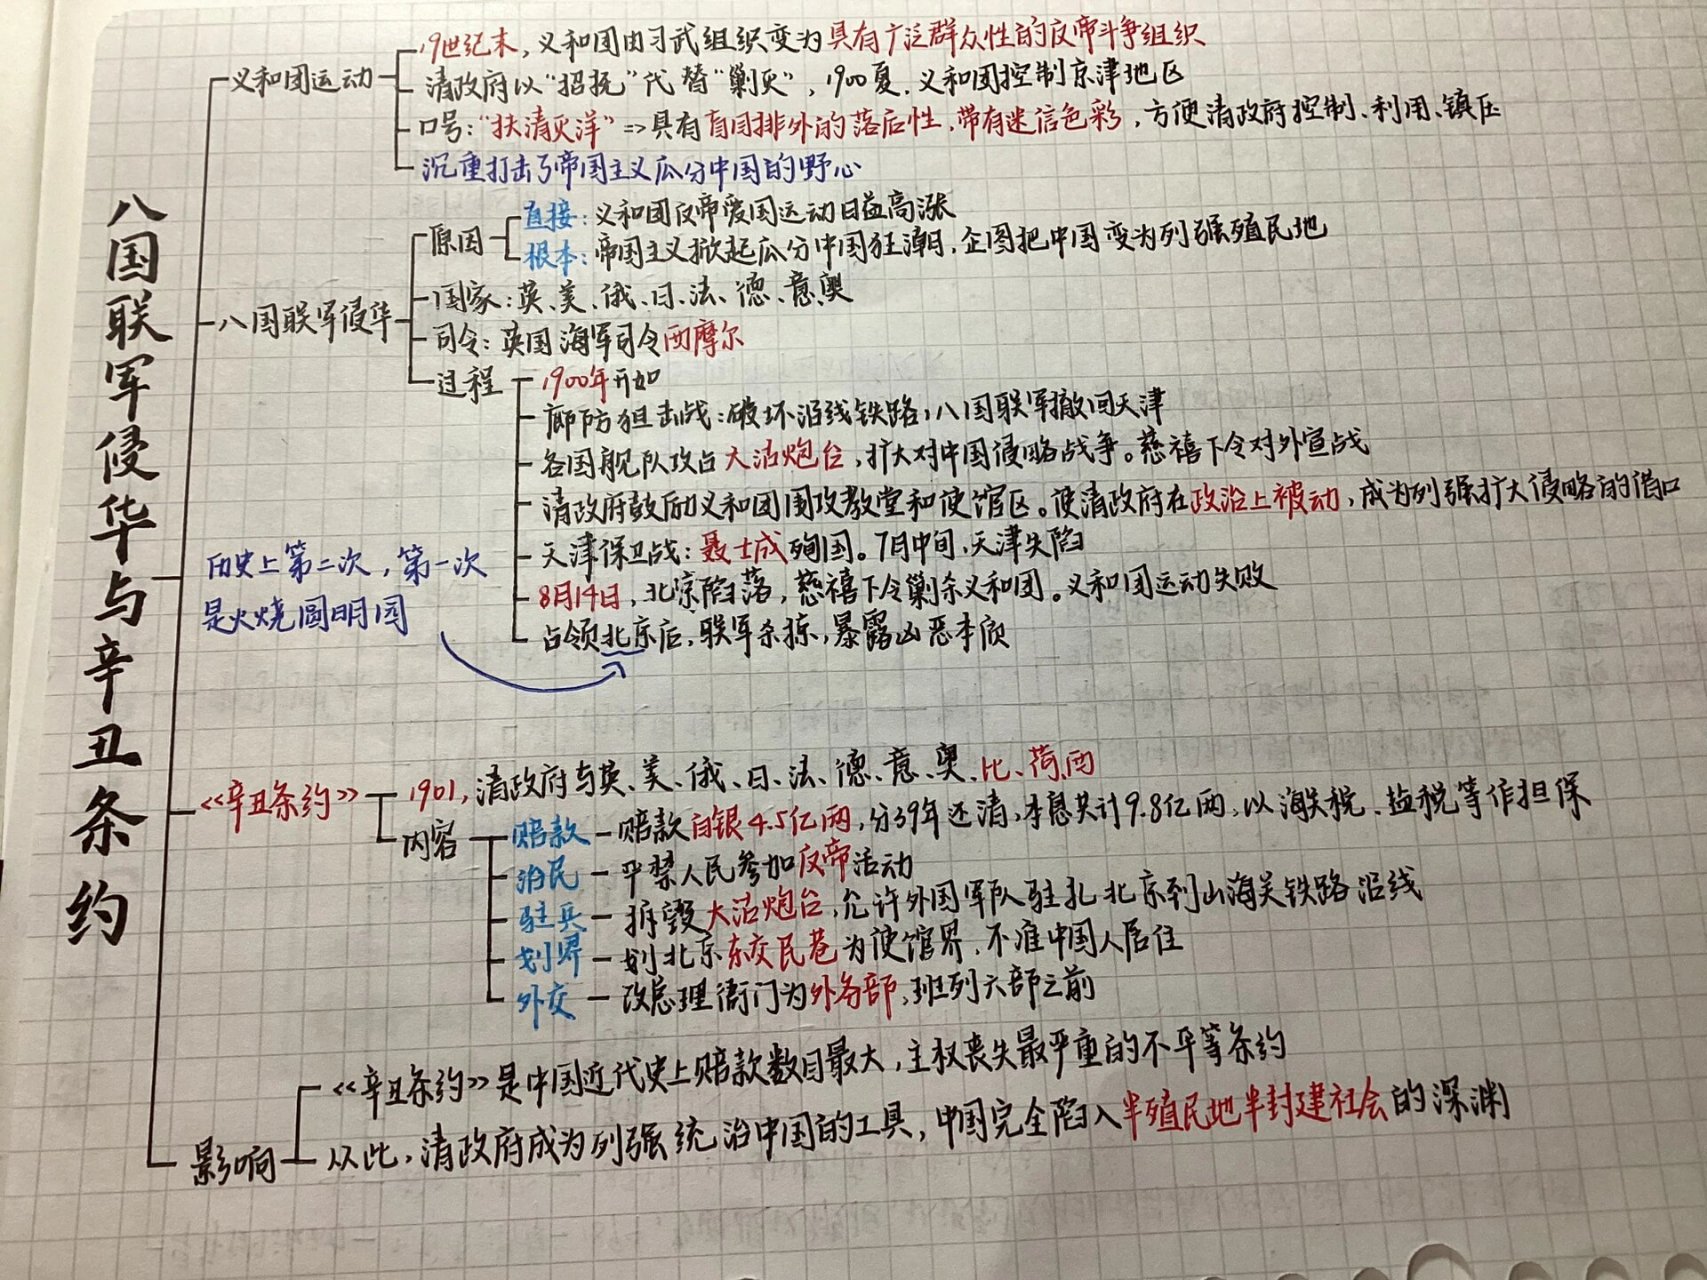 八国联军侵华与辛丑条约
义和团运动
19世纪末，义和团由习武组织变为具有广泛群众性的反帝斗争组织
清政府以“招抚”代替“剿灭”，1900夏，义和团控制京津地区
口号：“扶清灭洋”=>具有盲目排外的落后性，带有迷信色彩，方便清政府控制、利用、镇压
沉重打击了帝国主义瓜分中国的野心
八国联军侵华
原因
直接：义和团反帝爱国运动日益高涨
根本：帝国主义掀起瓜分中国狂潮，企图把中国变为列强殖民地
国家：英、美、俄、日、法、德、意、奥
司令：英国海军司令西摩尔
过程
1900年开始
廊坊狙击战：破坏沿线铁路，八国联军撤回天津
各国舰队攻占大沽炮台，扩大对中国侵略战争。慈禧下令对外宣战
清政府鼓励义和团围攻教堂和使馆区。使清政府在政治上被动，成为列强扩大侵略的借口
天津保卫战：聂士成殉国。7月中旬，天津失陷
8月14日，北京陷落，慈禧下令剿杀义和团。义和团运动失败
占领北京后，联军杀掠，暴露凶恶本质
历史上第二次，第一次
是火烧圆明园
《辛丑条约》
1901，清政府与英、美、俄、日、法、德、意、奥、比、荷、西
内容
赔款—赔款白银4.5亿两，分39年还清，本息共计9.8亿两，以海关税、盐税等作担保
治民—严禁人民参加反帝活动
驻兵—拆毁大沽炮台，允许外国军队驻扎北京到山海关铁路沿线
划界—划北京东交民巷为使馆界，不准中国人居住
外交—改总理衙门为外务部，班列六部之前
影响
《辛丑条约》是中国近代史上赔款数目最大，主权丧失最严重的不平等条约
从此，清政府成为列强统治中国的工具，中国完全陷入半殖民地半封建社会的深渊